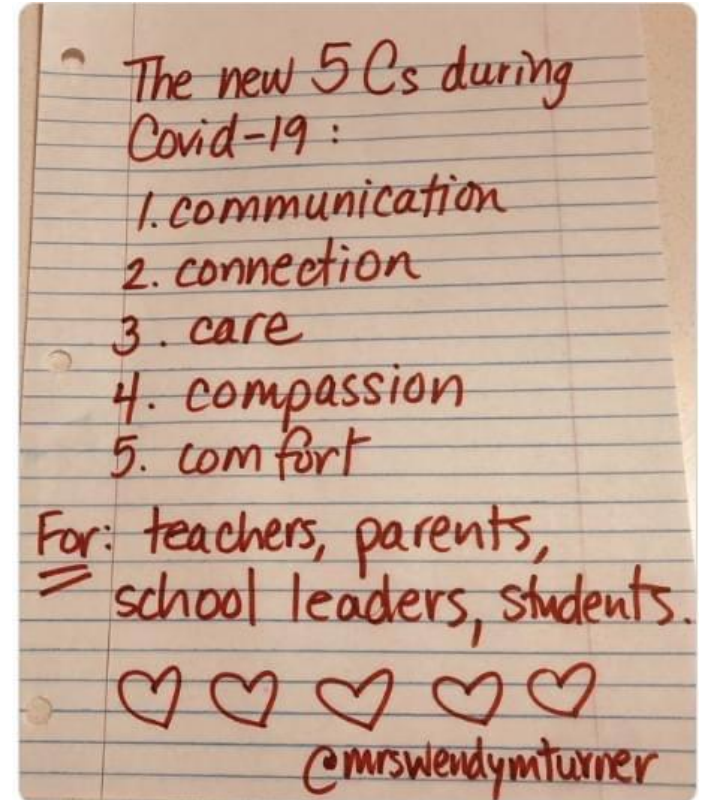 The new 5 Cs during
Covid-19:
1. communication
2. connection
3. care
4. compassion
5. comfort
For: teachers, parents,
school leaders, students.
@mrswendymturner